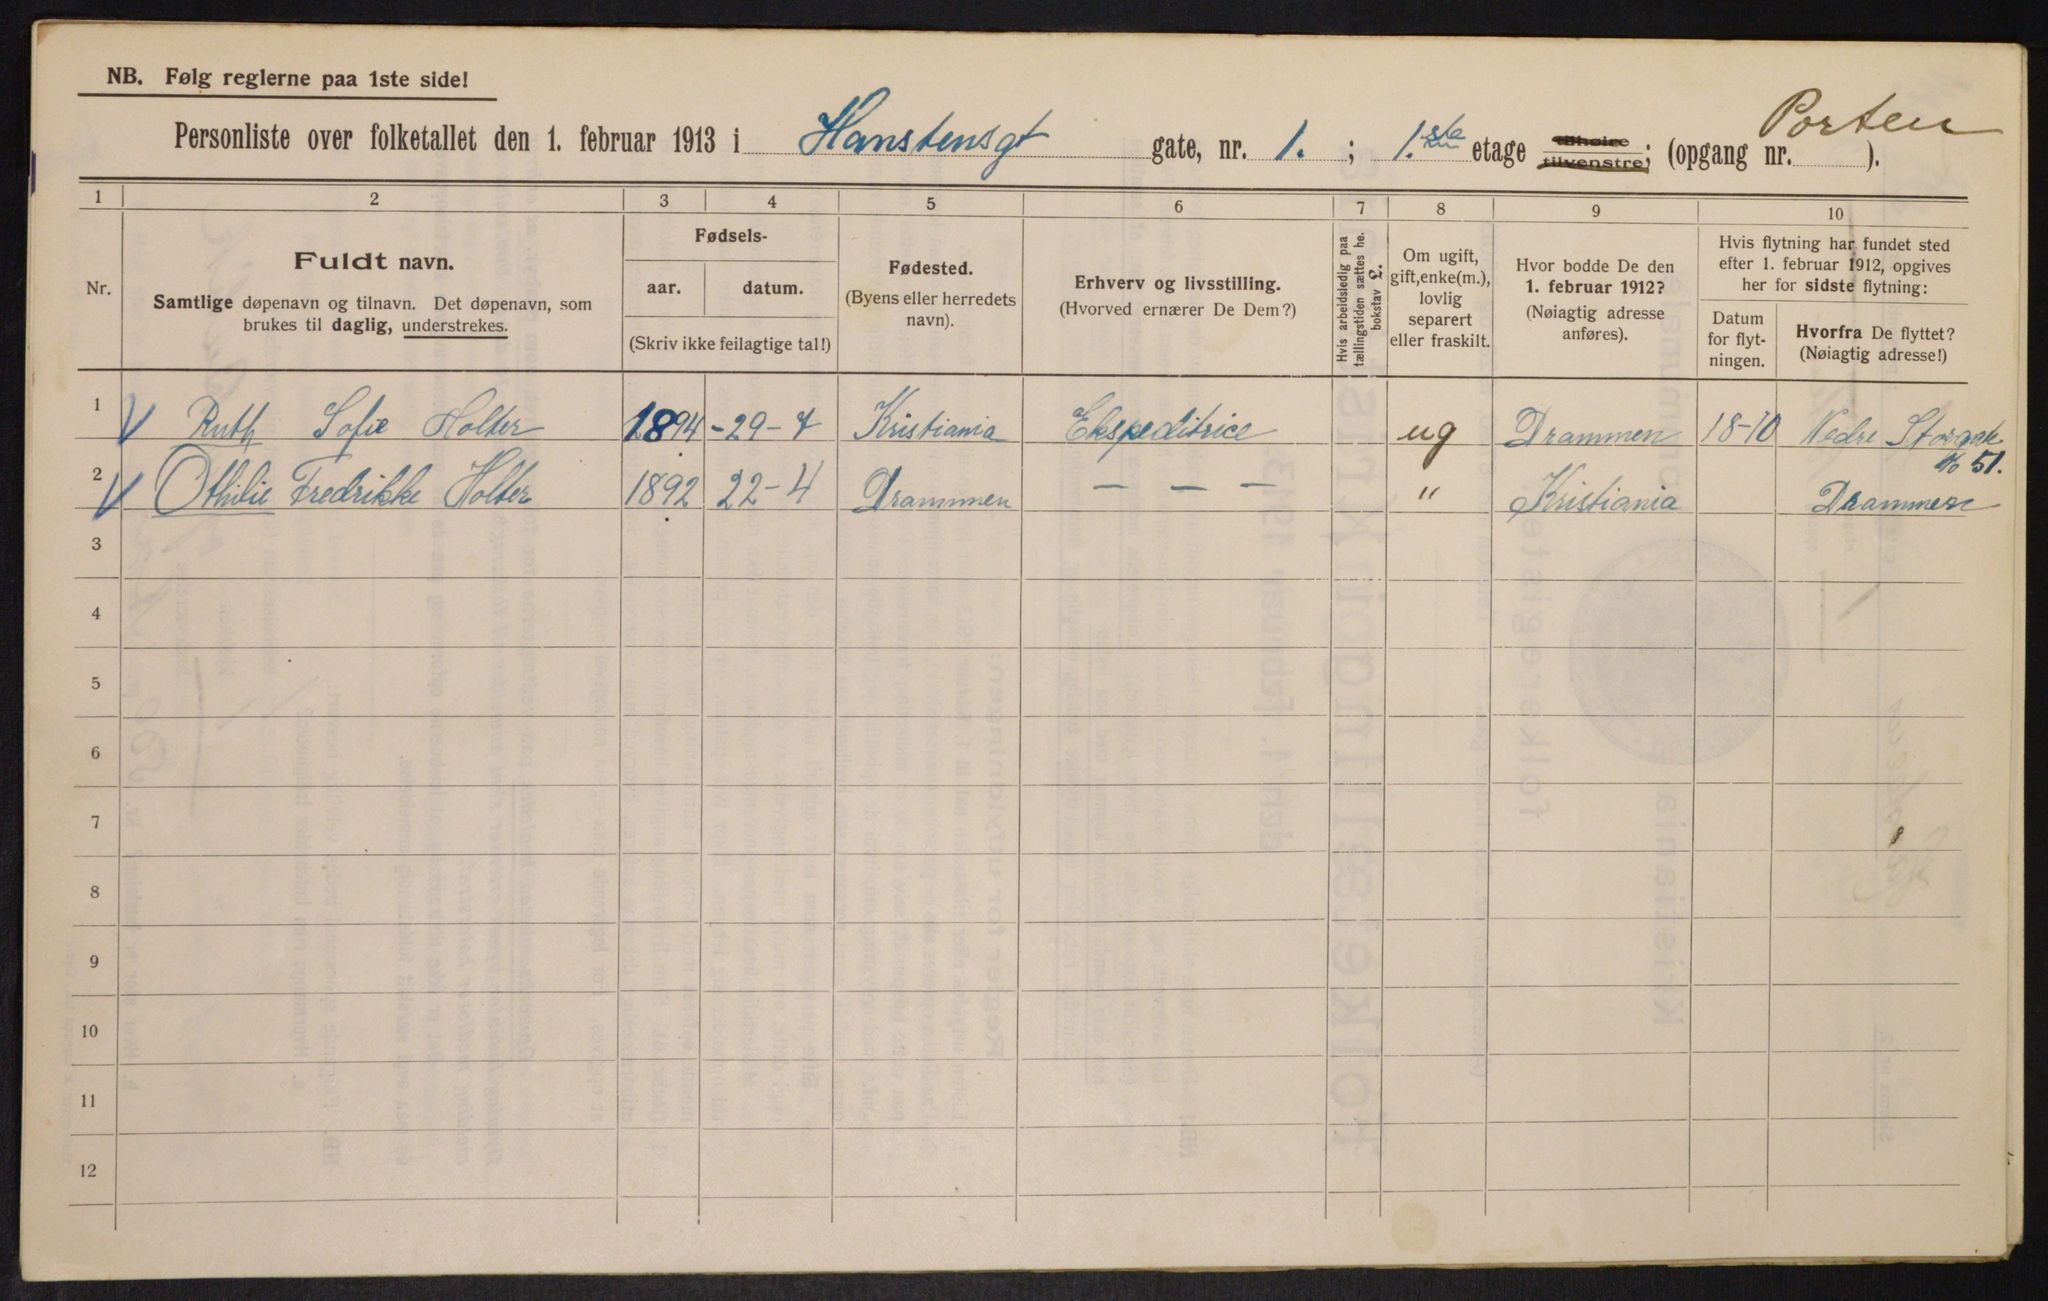 NB. Følg reglerne paa 1ste side!
Personliste over folketallet den 1. februar 1913 i Hanstensgt gate, nr. 1. ; 1.ste etage tilhøire tilvenstre; (opgang nr. Porten ).
1 2 3 4 5 6 7 8 9 10
Nr.
Fuldt navn.
Samtlige døpenavn og tilnavn. Det døpenavn, som
brukes til daglig, understrekes.
Fødsels-
aar. datum.
(Skriv ikke feilagtige tal!)
Fødested.
(Byens eller herredets
navn).
Erhverv og livsstilling.
(Hvorved ernærer De Dem?)
Hvis arbeidsledig paa
tællingstiden sættes he.
bokstav L.
Om ugift,
gift, enke(m.),
lovlig
separert
eller fraskilt.
Hvor bodde De den
1. februar 1912?
(Nøiagtig adresse
anføres).
Hvis flytning har fundet sted
efter 1. februar 1912, opgives
her for sidste flytning:
Datum
for flyt-
ningen.
Hvorfra De flyttet?
(Nøiagtig adresse!)
1 Ruth Sofie Holter 1894 -29-4 Kristiania Ekspeditrice ug Drammen 18-10 Nedre
51.
2 Othilie Fredrikke Holter 1892 22-4 Drammen — — — " Kristiania Drammen
3
4
5
6
7
8
9
10
11
12